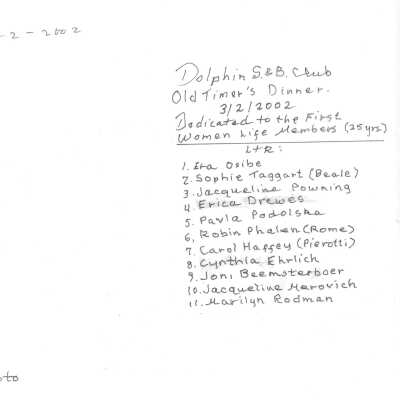 -2-2002
Dolphin S.&B. Club
Old Timer's Dinner.
3/2/2002
Dedicated to the First
Women Life Members (25yrs)
L+R:
1. Ita Osibe
2. Sophie Taggart (Beale)
3. Jacqueline Powning
4. Erica Drewes
5. Pavla Podolska
6. Robin Phalen (Rome)
7. Carol Haffey (Pierotti)
8. Cynthia Ehrlich
9. Joni Beemsterboer
10. Jacqueline Merovich
11. Marilyn Rodman